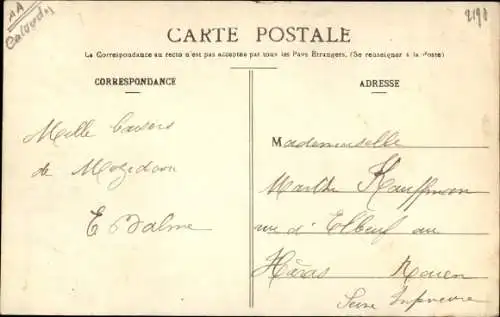 AA
Calvados
2190
CARTE POSTALE
La Correspondance au recto n'est pas acceptée par tous les Pays Etrangers. (Se renseigner à la Poste)
CORRESPONDANCE
ADRESSE
Mille baisers
de
E Balme
Mademoiselle
Marthe Kauffmann
rue d'Elbeuf au
Haras Rouen
Seine Inferieure